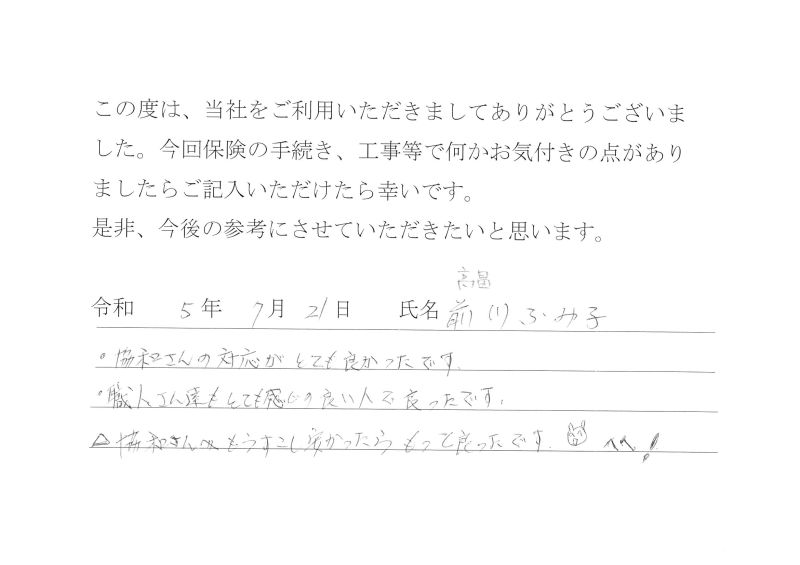 この度は、当社をご利用いただきましてありがとうございま
した。今回保険の手続き、工事等で何かお気付きの点があり
ましたらご記入いただけたら幸いです。
是非、今後の参考にさせていただきたいと思います。
高畠
令和 5年 7月 21日 氏名 前川ふみ子
・協和さんの対応がとても良かったです。
・職人さん達もとても感じの良い人で良ったです。
△協和さんへもうすこし安かったらもって良ったです。 へへ!